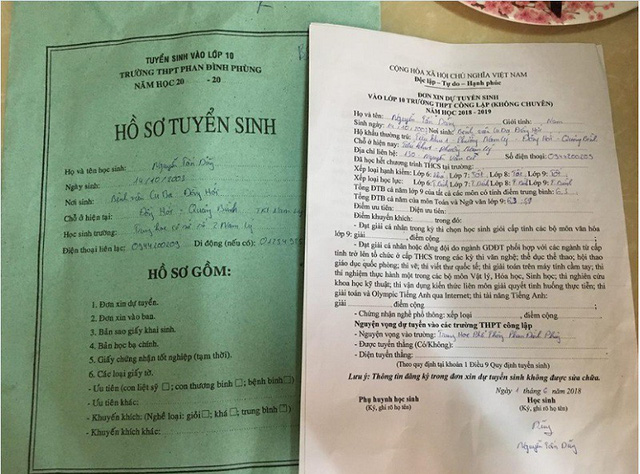 TUYỂN SINH VÀO LỚP 10
TRƯỜNG THPT PHAN ĐÌNH PHÙNG
NĂM HỌC 20 -20
HỒ SƠ TUYỂN SINH
Họ và tên học sinh: Nguyễn Tấn Dũng
Ngày sinh: 14/10/2003
Nơi sinh: Bệnh viện Cu Ba Đồng Hới
Chỗ ở hiện tại: Đồng Hới - Quảng Bình
Học sinh trường: Trung học cơ sở số 2 Nam Lý
Điện thoại liên lạc: 0944200209 Di động (nếu có):
HỒ SƠ GỒM:
1. Đơn xin dự tuyển.
2. Đơn xin vào ban.
3. Bản sao giấy khai sinh.
4. Bản học bạ chính.
5. Giấy chứng nhận tốt nghiệp (tạm thời).
6. Các loại giấy tờ.
- Ưu tiên (con liệt sỹ □; con thương binh □; bệnh binh □)
- Ưu tiên khác:
- Khuyến khích: (Nghề loại: giỏi □; khá □; trung bình □)
- Khuyến khích khác:
CỘNG HÒA XÃ HỘI CHỦ NGHĨA VIỆT NAM
Độc lập - Tự do - Hạnh phúc
ĐƠN XIN DỰ TUYỂN SINH
VÀO LỚP 10 TRƯỜNG THPT CÔNG LẬP (KHÔNG CHUYÊN)
NĂM HỌC 2018 - 2019
Họ và tên: Nguyễn Tấn Dũng Giới tính: Nam
Sinh ngày: 14/10/2003 Nơi sinh: Bệnh viện Cu Ba Đồng Hới
Hộ khẩu thường trú: Tiểu khu 1 - Phường Nam Lý - Đồng Hới - Quảng Bình
Chỗ ở hiện nay: Tiểu khu 1 - Phường Nam Lý
Địa chỉ liên hệ: Nguyễn Số điện thoại: 0944200209
Đã học hết chương trình THCS tại trường:
Xếp loại hạnh kiểm: Lớp 6: Lớp 7: Tốt, Lớp 8: Tốt, Lớp 9: Tốt
Xếp loại học lực: Lớp 6: Lớp 7: Lớp 8: Lớp 9:
Tổng ĐTB cả năm lớp 9 của tất cả các môn có tính điểm trung bình: 6.3
Tổng ĐTB cả năm của môn Toán và Ngữ văn lớp 9:
Điểm ưu tiên: Diện ưu tiên:
Điểm khuyến khích: trong đó:
- Đạt giải cá nhân trong kỳ thi chọn học sinh giỏi cấp tỉnh các bộ môn văn hóa
lớp 9: giải , điểm cộng
- Đạt giải cá nhân hoặc đồng đội do ngành GDĐT phối hợp với các ngành từ cấp
tỉnh trở lên tổ chức ở cấp THCS trong các kỳ thi văn nghệ; thể dục thể thao; hội thao
giáo dục quốc phòng; thi vẽ; thi viết thư quốc tế; thi giải toán trên máy tính cầm tay; thi
thí nghiệm thực hành một trong các bộ môn Vật lý, Hóa học, Sinh học; thi nghiên cứu
khoa học kỹ thuật; thi vận dụng kiến thức liên môn giải quyết tình huống thực tiễn; thi
giải toán và Olympic Tiếng Anh qua Internet; thi tài năng Tiếng Anh:
giải , điểm cộng
- Chứng nhận nghề phổ thông: xếp loại , điểm cộng
Nguyện vọng dự tuyển vào các trường THPT công lập
- Nguyện vọng vào trường: Trung Học Phổ Thông Phan Đình Phùng
- Được tuyển thẳng (Có/Không):
- Diện tuyển thẳng:
(Theo quy định tại khoản 1 Điều 9 Quy định tuyển sinh)
Lưu ý: Thông tin đăng ký trong đơn xin dự tuyển sinh không được sửa chữa.
Ngày 1 tháng 6 2018
Phụ huynh học sinh Học sinh
(Ký, ghi rõ họ tên) (Ký, ghi rõ họ tên)
Dũng
Nguyễn Tấn Dũng